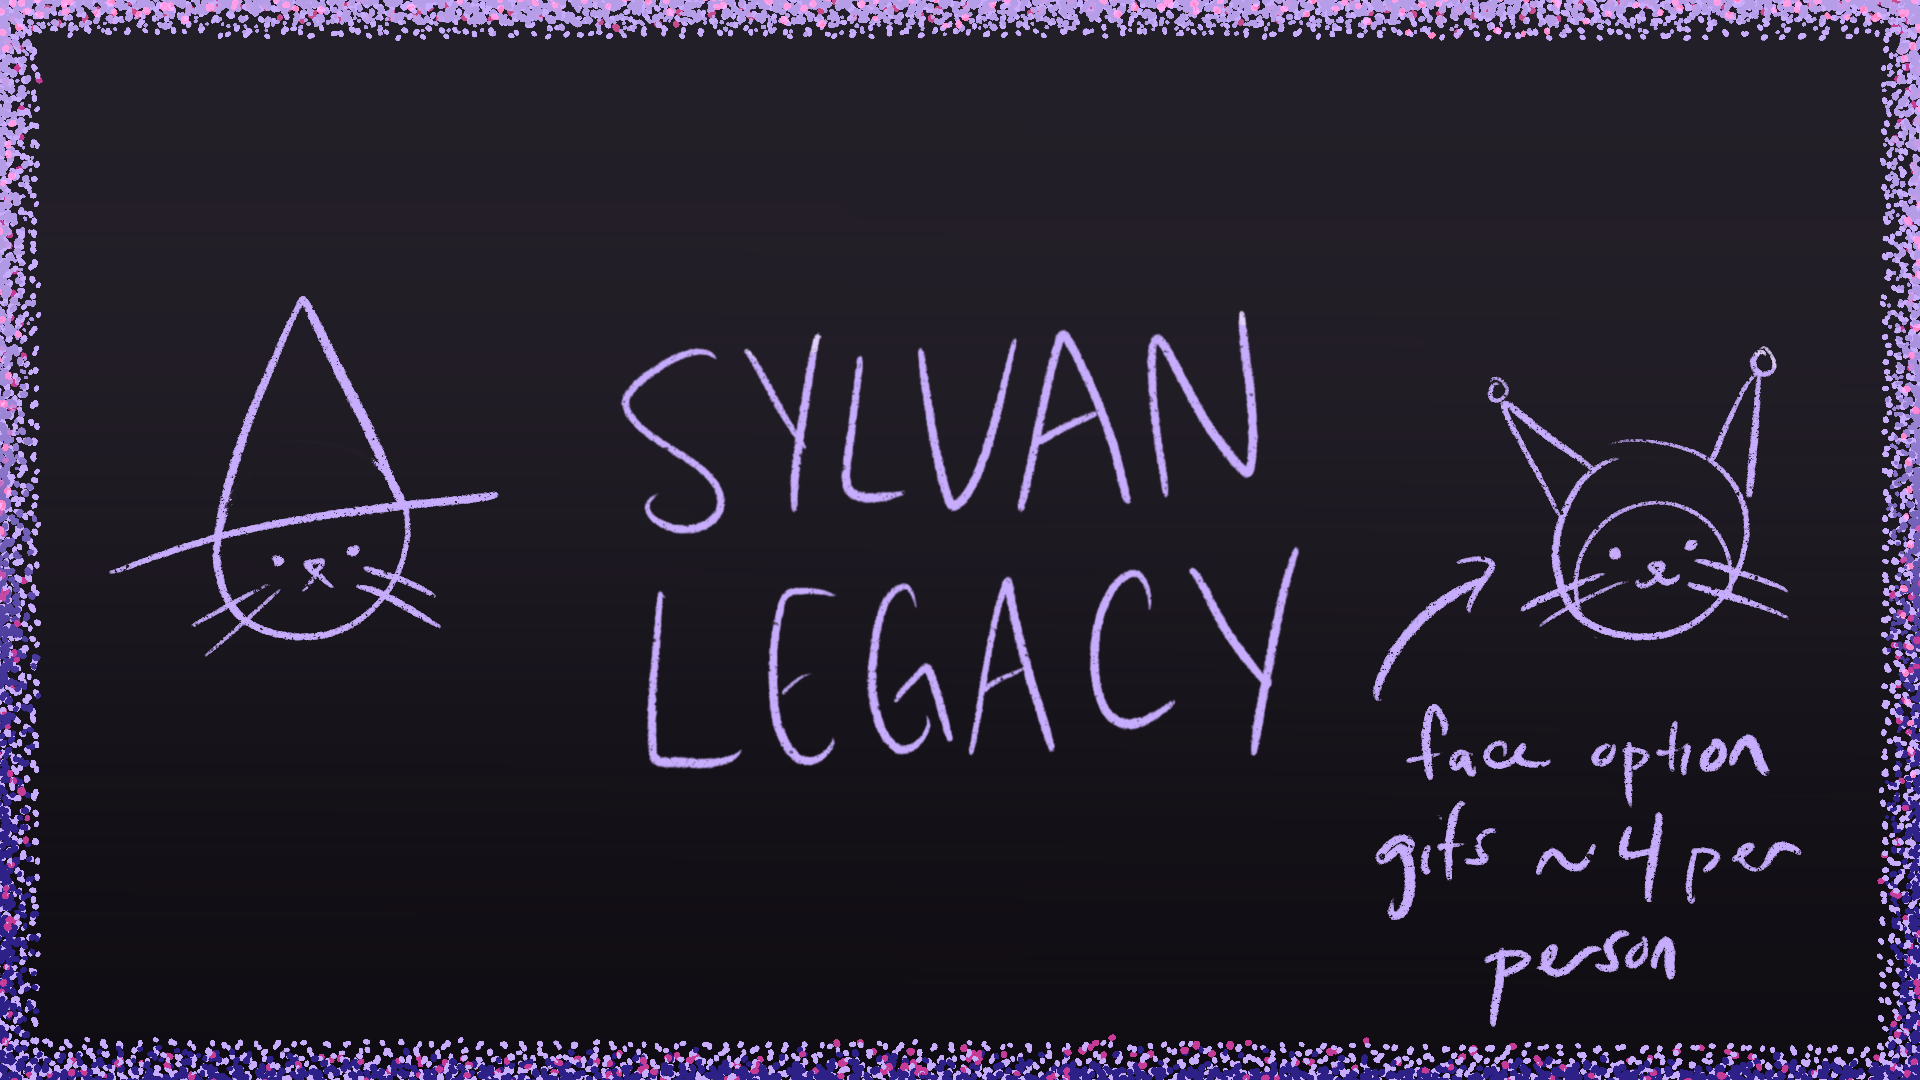 SYLVAN
LEGACY
face option
gifs ~ 4 per
person